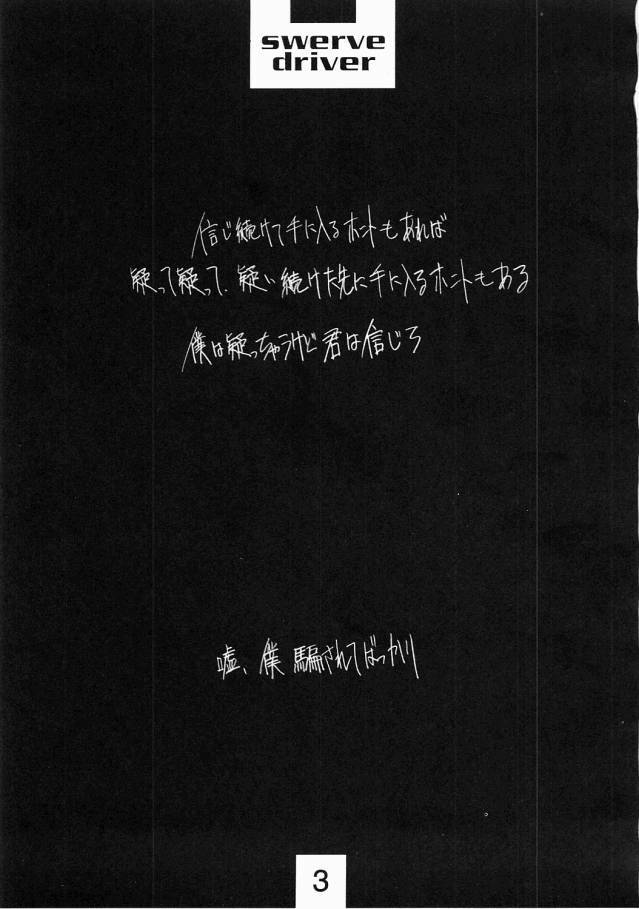 swerve
driver
信じ続けて手に入るホントもあれば
疑って疑って、疑い続けた先に手に入るホントもある
僕は疑っちゃうけど君は信じろ
嘘、僕騙されてばっかり
3